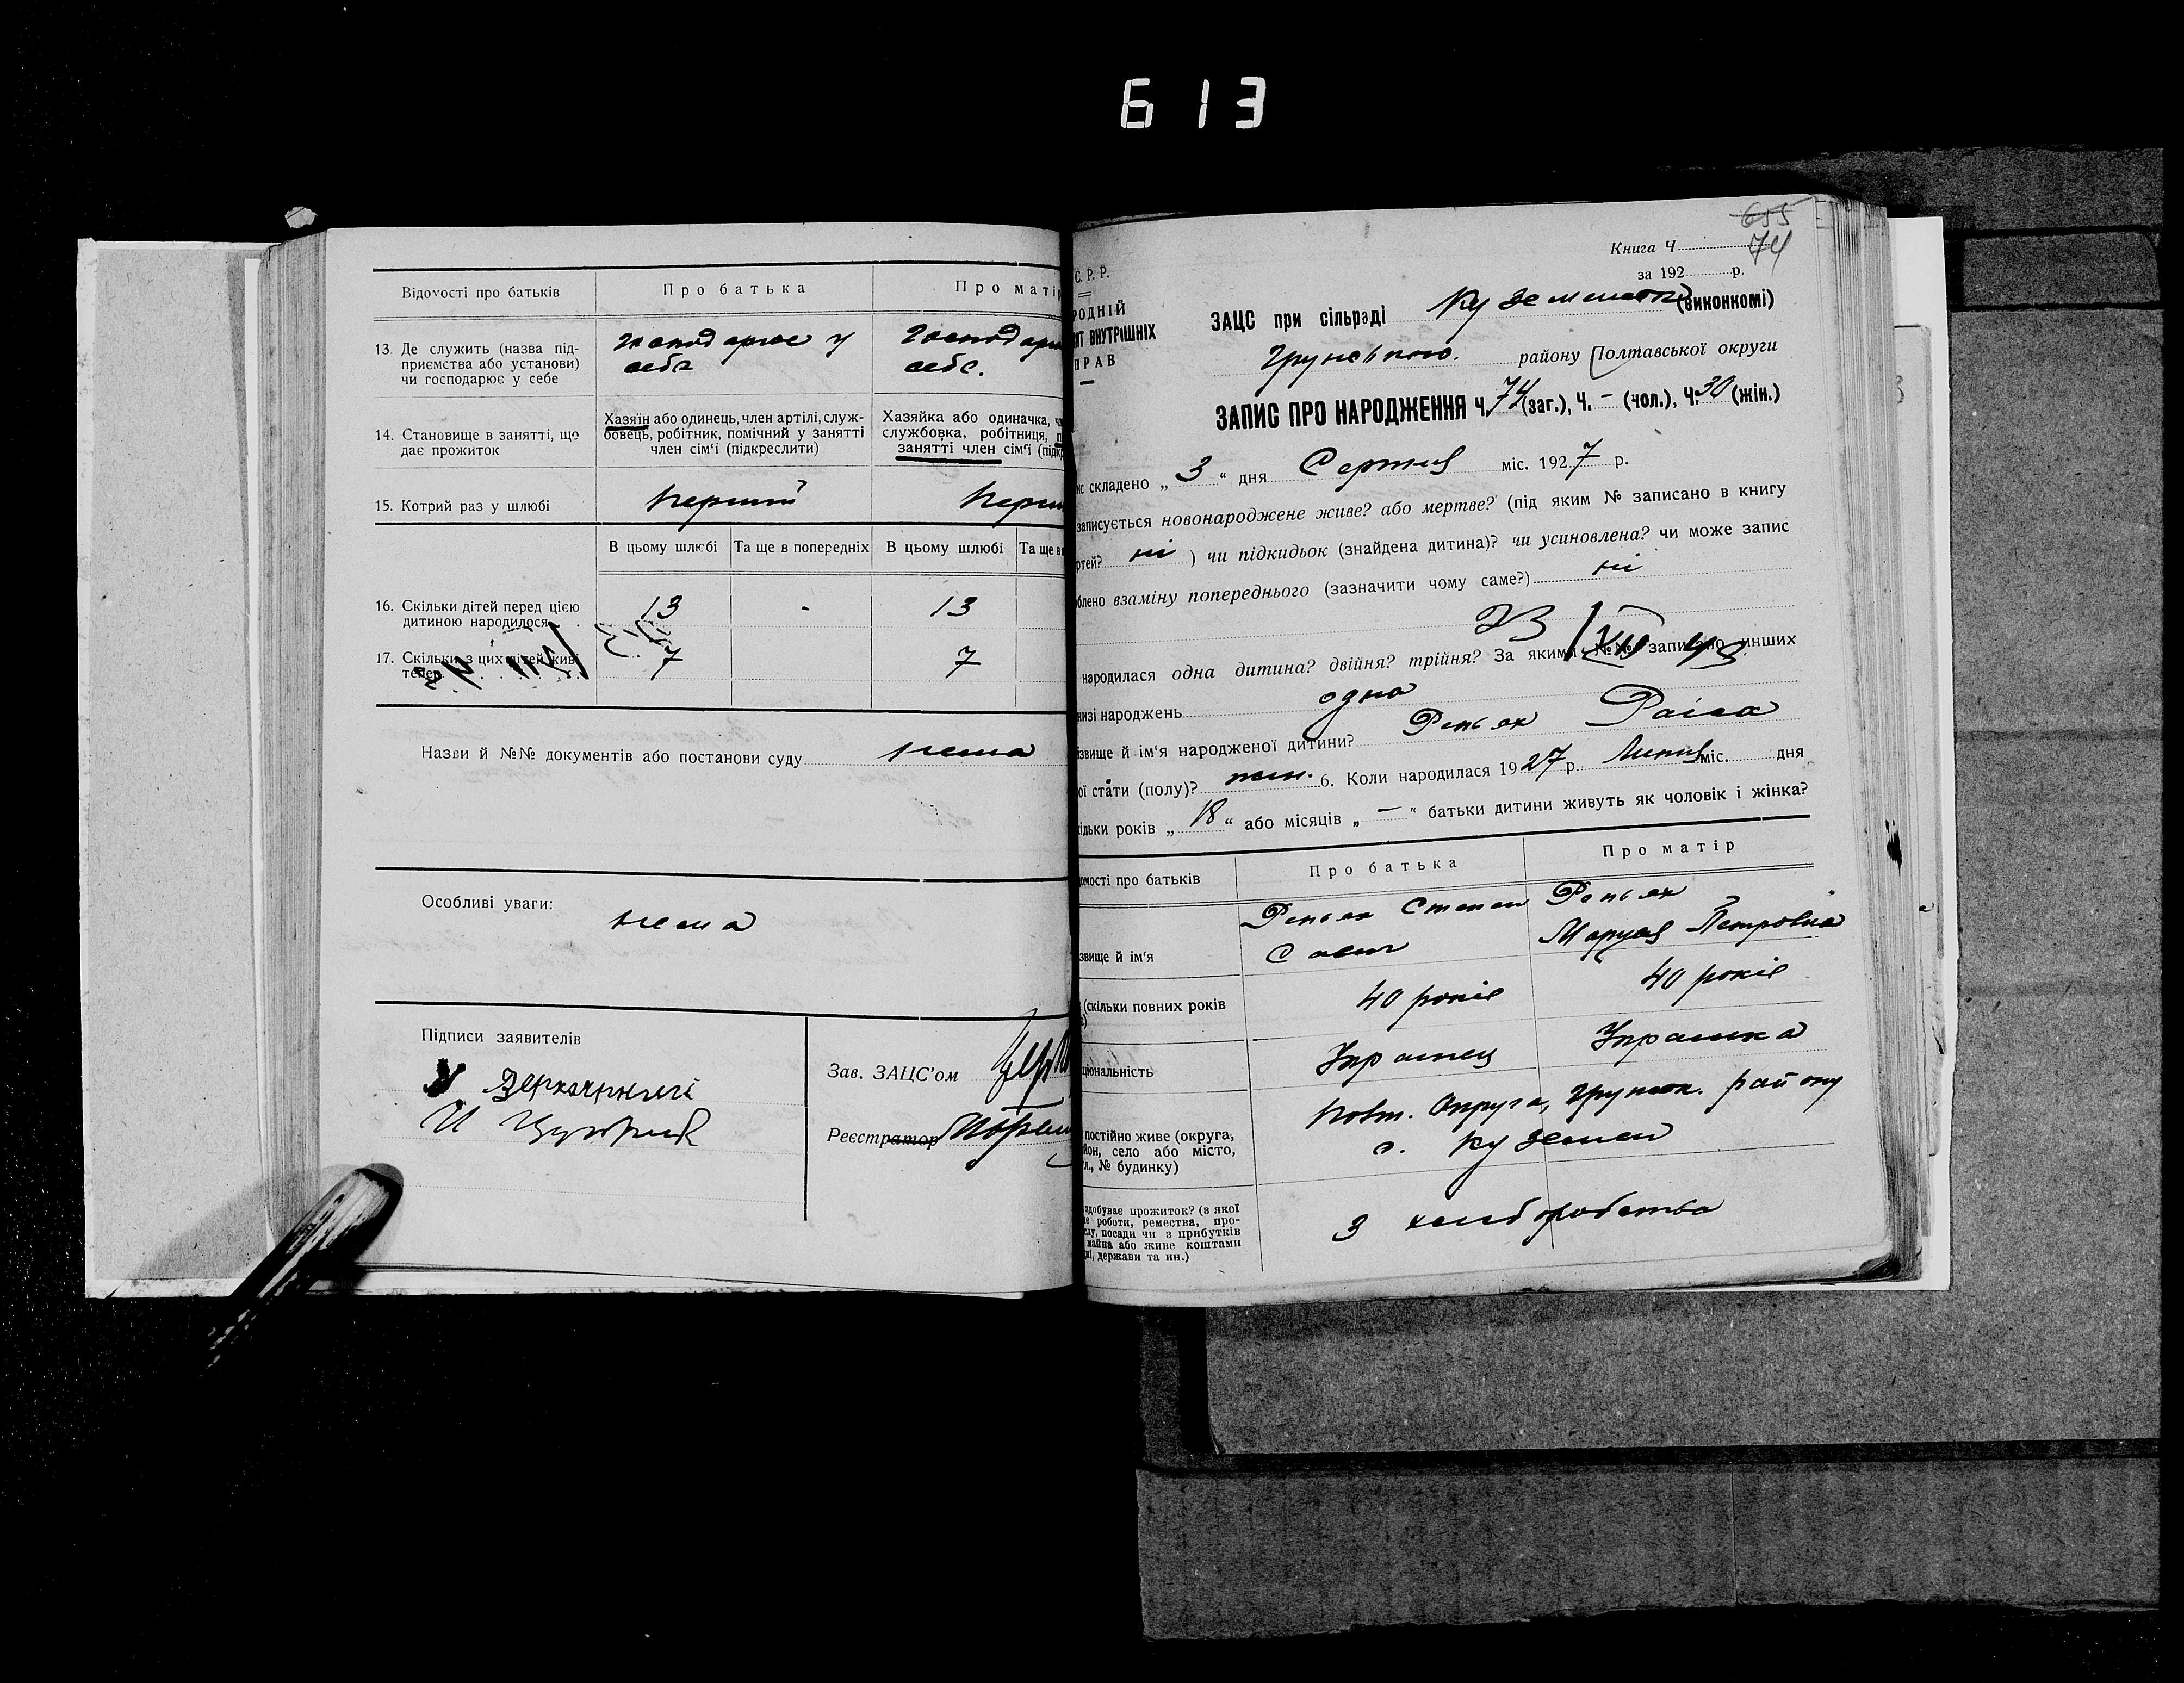 613
Відомості про батьків
Про батька
Про матір
13. Де служить (назва під-
приємства або установи)
чи господарює у себе
господарює у
себе
господарю
себе.
14. Становище в занятті, що
дає прожиток
Хазяїн або одинець, член артілі, служ-
бовець, робітник, помічний у занятті
член сім'ї (підкреслити)
Хазяйка або одиначка, ч
службовка, робітниця, п
занятті член сім'ї (підк
15. Котрий раз у шлюбі
перший
перш
В цьому шлюбі
Та ще в попередніх
В цьому шлюбі
Та ще в
16. Скільки дітей перед цією
дитиною народилося
13
-
13
17. Скільки з цих дітей живі
тепер
7
7
Назви й №№ документів або постанови суду
нема
Особливі уваги:
нема
Підписи заявителів
Зав. ЗАЦС'ом
Реєстратор
655
Книга Ч
74
за 192 р.
С. Р. Р.
РОДНІЙ
ЯТ ВНУТРІШНІХ
ПРАВ
ЗАЦС при сільраді
(виконкомі)
району Полтавської округи
ЗАПИС ПРО НАРОДЖЕННЯ Ч. 74 (заг.), Ч. – (чол.), Ч. 30 (жін.)
складено „ 3 “ дня Серпня міс. 1927 р.
записується новонароджене живе? або мертве? (під яким № записано в книгу
ртей? ні ) чи підкидьок (знайдена дитина)? чи усиновлена? чи може запис
блено взаміну попереднього (зазначити чому саме?) ні
народилася одна дитина? двійня? трійня? За якими №№ записано инших
низі народжень одна
ізвище й ім'я народженої дитини? Реп'ях Раіса
ої стати (полу)? жін. 6. Коли народилася 1927 р. Липня міс. дня
ільки років „ 18 “ або місяців „ — “ батьки дитини живуть як чоловік і жінка?
омості про батьків
Про батька
Про матір
звище й ім'я
Реп'ях Степан
Савич
Реп'ях
Маруся Петровна
(скільки повних років
40 років
40 років
ціональність
Украінец
Украінка
постійно живе (округа,
йон, село або місто,
л., № будинку)
Полт. Округа, Грунськ. району
с. Куземен
здобуває прожиток? (з якої
е роботи, ремества, про-
слу, посади чи з прибутків
майна або живе коштами
ні, держави та ин.)
З хліборобства